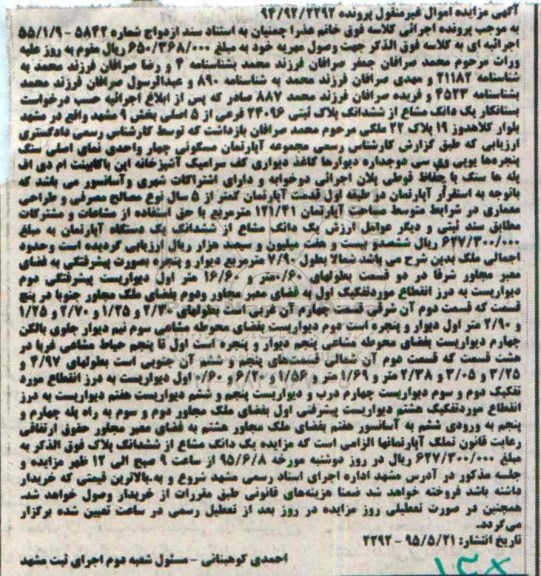 آگهی مزایده اموال غیرمنقول پرونده ۹۴/۹۲/۲۲۹۲
به موجب پرونده اجرائی کلاسه فوق خانم عذرا چمنیان به استناد سند ازدواج شماره ۵۸۴۲ - ۵۵/۱/۹
اجرائیه ای به کلاسه فوق الذکر جهت وصول مهریه خود به مبلغ ۶۵۰/۳۶۸/۰۰۰ ریال مقوم به روز علیه
وراث مرحوم محمد صرافان جعفر صرافان فرزند محمد بشناسنامه ۴ و رضا صرافان فرزند محمد به
شناسنامه ۲۱۱۸۲ و مهدی صرافان فرزند محمد به شناسنامه ۸۹۰ و عبدالرسول صرافان فرزند محمد
بشناسنامه ۴۵۲۳ و فریده صرافان فرزند محمد ۸۸۷ صادر که پس از ابلاغ اجرائیه حسب درخواست
بستانکار یک دانگ مشاع از ششدانگ پلاک ثبتی ۲۳۰۹۶ فرعی از ۵ اصلی بخش ۹ مشهد واقع در مشهد
بلوار کلاهدوز ۱۹ پلاک ۲۲ ملکی مرحوم محمد صرافان بازداشت که توسط کارشناس رسمی دادگستری
ارزیابی که طبق گزارش کارشناس رسمی مجموعه آپارتمان مسکونی چهار واحدی نمای اصلی سنگ
پنجره‌ها یوپی وی سی دوجداره دیوارها کاغذ دیواری کف سرامیک آشپزخانه اپن باکابینت ام دی اف
پله ها سنگ با حفاظ قوطی پلان اجرائی دوخوابه و دارای اشتراکات شهری وآسانسور می باشد که
باتوجه به استقرار آپارتمان در طبقه اول قدمت آپارتمان کمتر از ۵ سال نوع مصالح مصرفی و طراحی
معماری در شرایط متوسط مساحت آپارتمان ۱۲۱/۳۱ مترمربع با حق استفاده از مشاعات و مشترکات
مطابق سند ثبتی و دیگر عوامل ارزش یک دانگ مشاع از ششدانگ یک دستگاه آپارتمان به مبلغ
۶۲۷/۳۰۰/۰۰۰ ریال ششصدو بیست و هفت میلیون و سیصد هزار ریال ارزیابی گردیده است وحدود
اجمالی ملک بدین شرح می باشد شمالا بطول ۷/۹۰ مترمربع دیوار و پنجره بصورت پیشرفتگی به فضای
معبر مجاور شرقا در دو قسمت بطولهای ۰/۶۰متر و ۱۶/۶۰ متر اول دیواریست پیشرفتگی دوم
دیواریست به درز انقطاع موردتفکیک اول به فضای معبر مجاور ودوم بفضای ملک مجاور جنوبا در پنج
قسمت که قسمت دوم آن شرقی قسمت چهارم آن غربی است بطولهای ۲/۳۰ و ۱/۲۵ و ۲/۷۰ و ۱/۲۵
و ۲/۹۰ متر اول دیوار و پنجره است دوم دیواریست بفضای محوطه مشاعی سوم نیم دیوار جلوی بالکن
چهارم دیواریست بفضای محوطه مشاعی پنجم دیوار و پنجره است اول تا پنجم حیاط مشاعی غربا در
هشت قسمت که قسمت دوم آن شمالی قسمت‌های پنجم و ششم آن جنوبی است بطولهای ۴/۹۷ و
۲/۲۵ و ۳/۰۵ و ۲/۳۸ متر و ۱/۶۹ متر و ۱/۵۶ و ۶/۲۰ و ۰/۶۰ اول دیواریست به درز انقطاع مورد
تفکیک دوم و سوم دیواریست چهارم درب و دیواریست پنجم و ششم دیواریست هفتم دیواریست به درز
انقطاع موردتفکیک هشتم دیواریست پیشرفتی اول بفضای ملک مجاور دوم و سوم به راه پله چهارم و
پنجم به ورودی ششم به آسانسور هفتم بفضای ملک مجاور هشتم به فضای معبر مجاور حقوق ارتفاقی
رعایت قانون تملک آپارتمانها الزامی است که مزایده یک دانگ مشاع از ششدانگ پلاک فوق الذکر به
مبلغ ۶۲۷/۳۰۰/۰۰۰ ریال در روز دوشنبه مورخه ۹۵/۶/۸ از ساعت ۹ صبح الی ۱۲ ظهر مزایده و
جلسه مذکور در آدرس مشهد اداره اجرای اسناد رسمی مشهد شروع و به بالاترین قیمتی که خریدار
داشته باشد فروخته خواهد شد ضمنا هزینه‌های قانونی طبق مقررات از خریدار وصول خواهد شد.
همچنین در صورت تعطیلی روز مزایده در روز بعد از تعطیل رسمی در ساعت تعیین شده برگزار
می‌گردد.
تاریخ انتشار: ۹۵/۵/۲۱ - ۲۲۹۲
احمدی کوهبنانی - مسئول شعبه دوم اجرای ثبت مشهد